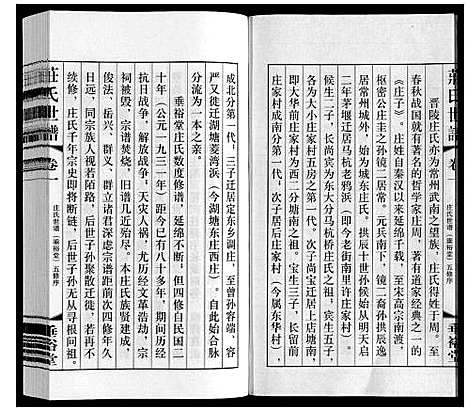 莊氏世譜
卷一
晋陵庄氏亦为常州武南之望族，庄氏得姓于周。
春秋战国就有著名的哲学家庄周，著有道家经典之一的
《庄子》。庄姓自秦汉以来延绵千载，至宋高宗南渡，
枢密公庄必强之孙镜二居常。元兵南下，镜二裔孙拱辰迁
居常州城外，始为城东庄氏。拱辰十世孙候始从明天启
二年茅堰迁居马杭老鸦浜（即今老街南里许庄家村）。
候生二子，长尚忠为大分马杭桥庄氏之祖，宾生五子，
各为大小庄家村五房之祖。次子尚宝迁居上店塘南，
即大华前庄家村，为西二分塘南之祖。宝生三子，长留前
庄家村成南分第一代，次子居后庄家村（今属东华村）
成北分第一代，三子迁居定东乡调庄，至曾孙容端、容
严又徙迁湖塘菱湾浜（今湖塘东西庄）。自此始合脉
分流为一本之亲。
垂裕堂庄氏数度修谱，延绵不断，但四修自民国二
十年（公元一九三一年）距今已有八十多年，期间历经
抗日战争、解放战争，天灾人祸，尤历经文革浩劫，宗
祠被毁，宗谱焚烧，旧谱几近殆尽。本庄氏族贤建成、
俊法、岳兴、群义、群立诸君深虑宗谱距前次修成年久
日远，同宗族人视若陌路，后世子孙聚散迁徙，若再不
续修，庄氏千年宗史即将断链，后世子孙无从寻根问祖。
莊氏世譜
卷一
庄氏世谱（垂裕堂）五修序
垂裕堂